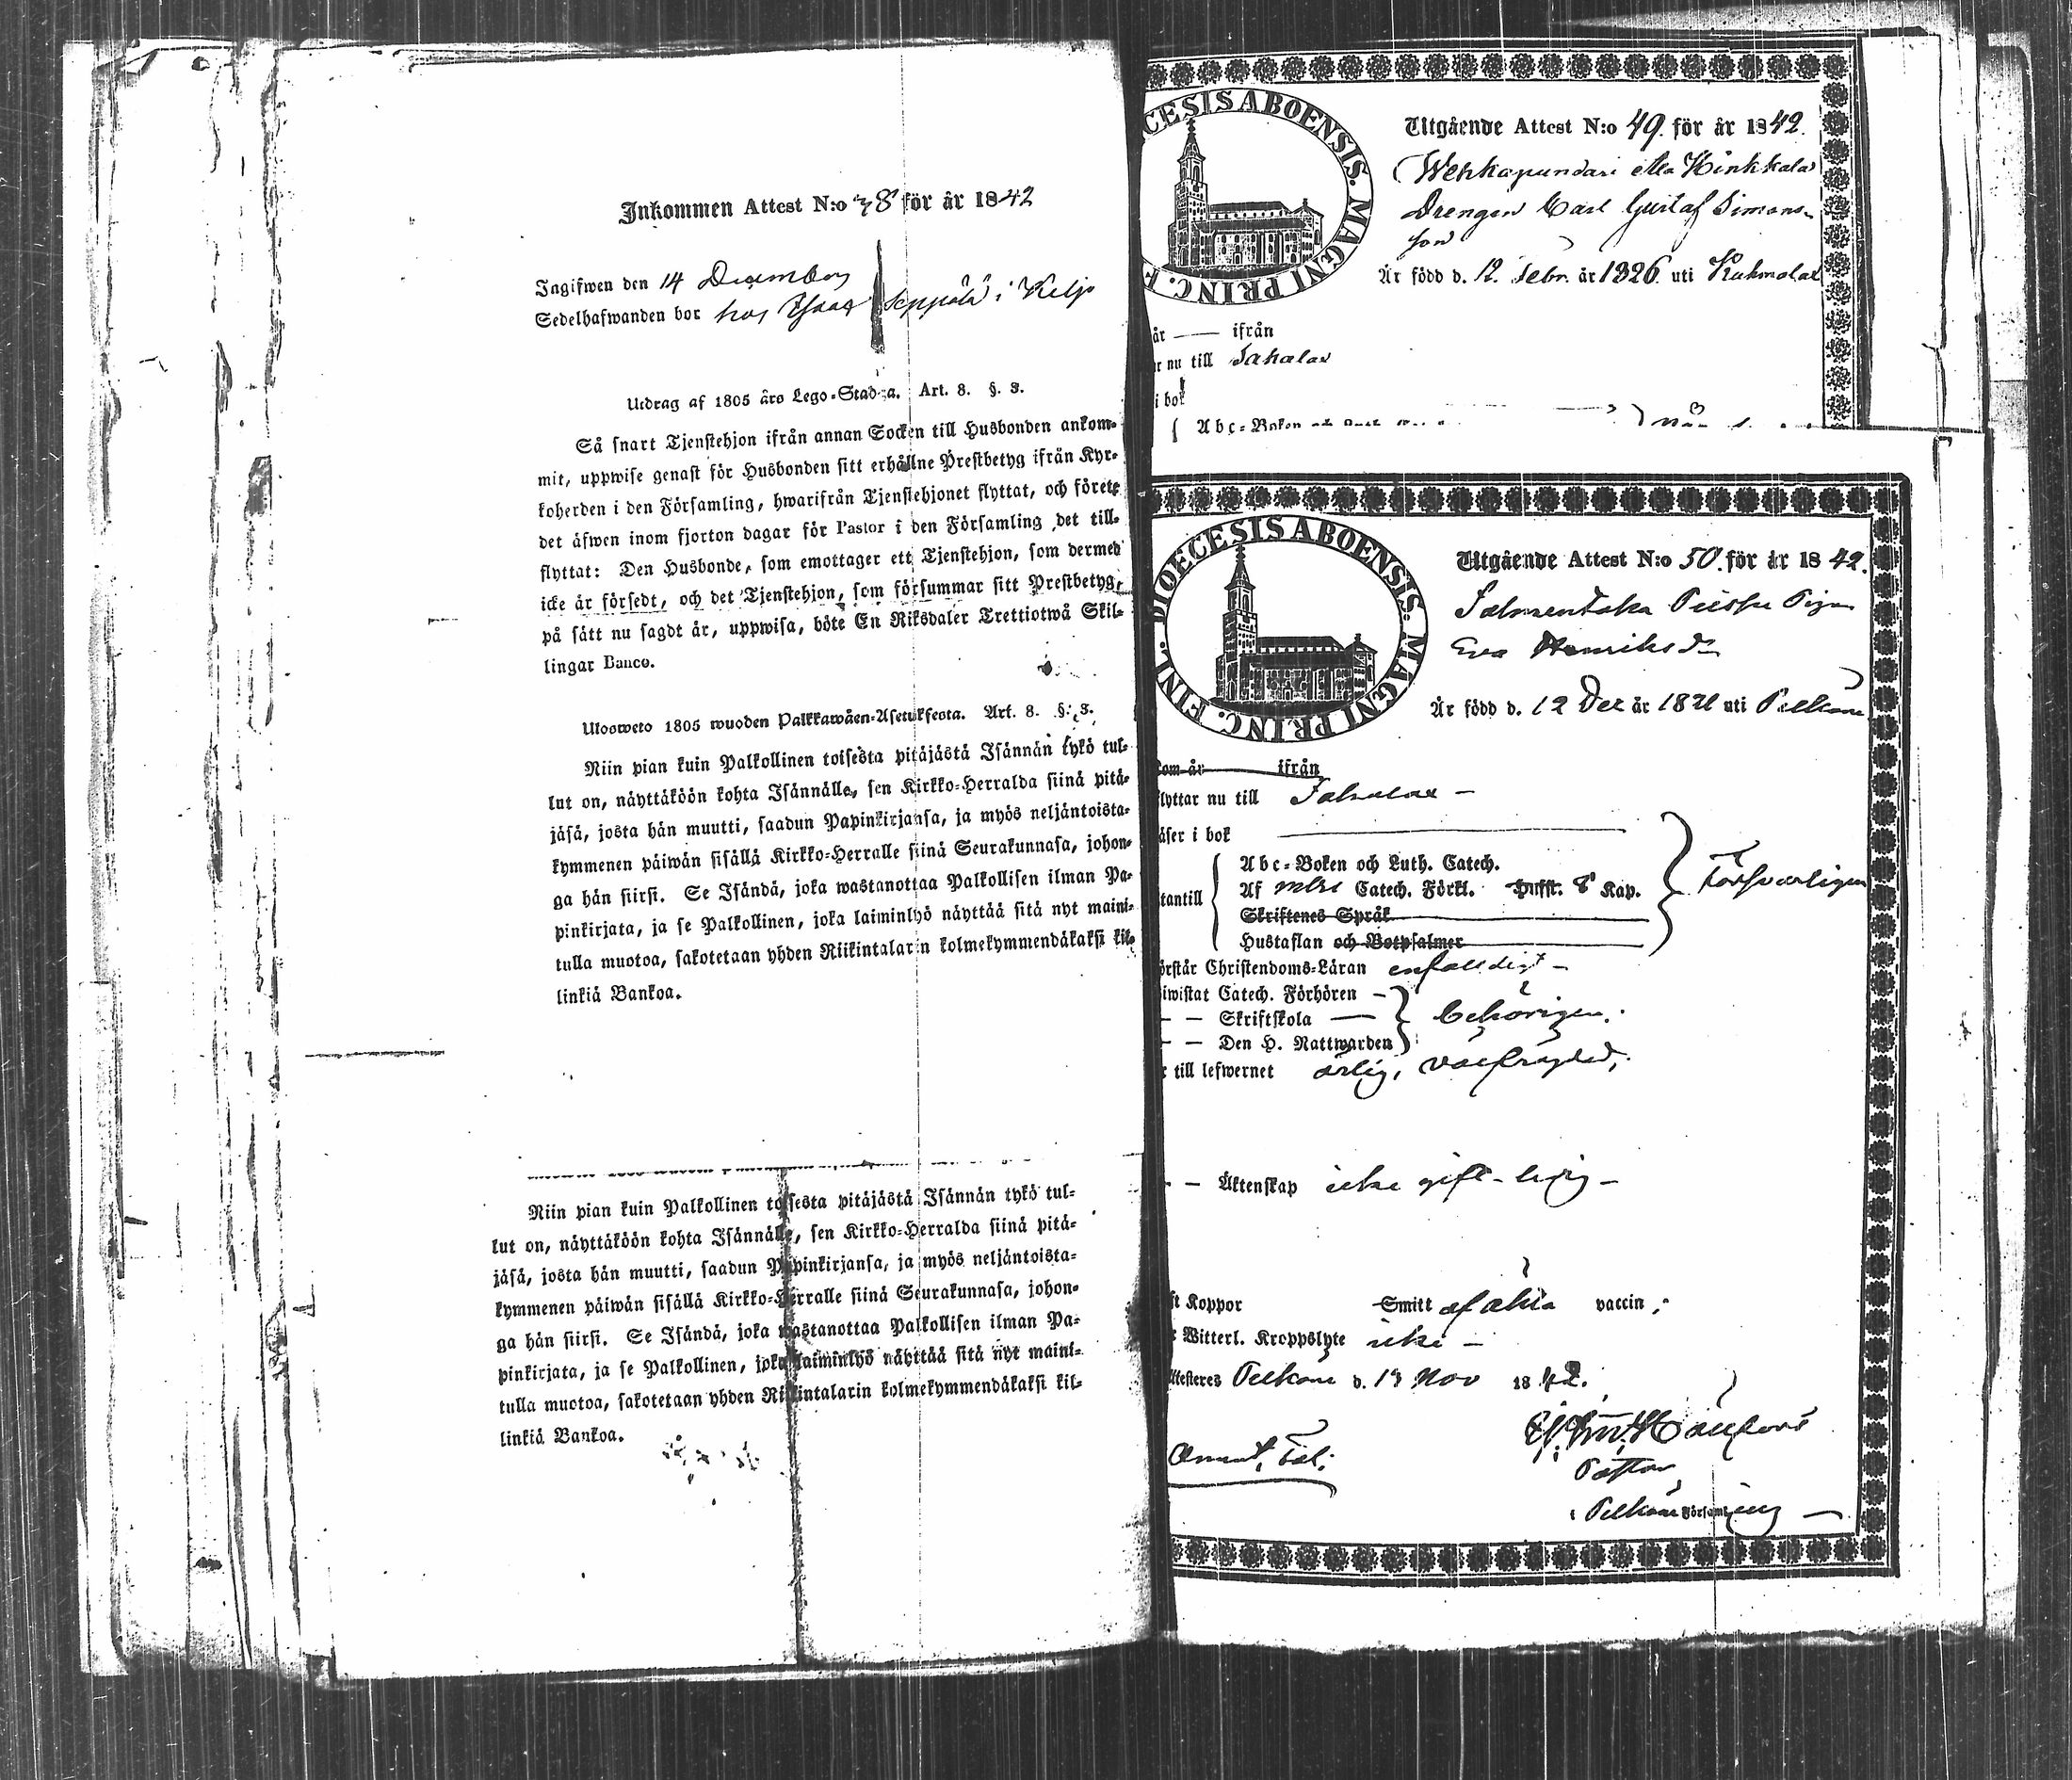 Inkommen Attest N:o 38 för år 1842
Ingifwen den 14 December
Sedelhafwanden bor hos Isaac Seppälä i Keljo
Utdrag af 1805 års Lego-Stadga. Art. 8. §. 3.
Så snart Tjenstehjon ifrån annan Socken till Husbonden ankom-
mit, uppwise genast för Husbonden sitt erhållne Prestbetyg ifrån Kyr-
koherden i den Församling, hwarifrån Tjenstehjonet flyttat, och förete
det äfwen inom fjorton dagar för Pastor i den Församling det till-
flyttat: Den Husbonde, som emottager ett Tjenstehjon, som dermed
icke är försedt, och det Tjenstehjon, som försummar sitt Prestbetyg,
på sätt nu sagdt är, uppwisa, böte En Riksdaler Trettiotwå Skil-
lingar Banco.
Ulosweto 1805 wuoden Palkkawäen-Asetuksesta. Art. 8. §. 3.
Niin pian kuin Palkollinen toisesta pitäjästä Isännän tykö tul-
lut on, näyttäköön kohta Isännälle, sen Kirkko-Herralda siinä pitä-
jäsä, josta hän muutti, saadun Papinkirjansa, ja myös neljäntoista-
kymmenen päiwän sisällä Kirkko-Herralle siinä Seurakunnasa, johon-
ga hän siirsi. Se Isändä, joka wastanottaa Palkollisen ilman Pa-
pinkirjata, ja se Palkollinen, joka laiminlyö näyttää sitä nyt maini-
tulla muotoa, sakotetaan yhden Riikintalarin kolmekymmendäkaksi kil-
linkiä Bankoa.
Niin pian kuin Palkollinen toisesta pitäjästä Isännän tykö tul-
lut on, näyttäköön kohta Isännälle, sen Kirkko-Herralda siinä pitä-
jäsä, josta hän muutti, saadun Papinkirjansa, ja myös neljäntoista-
kymmenen päiwän sisällä Kirkko-Herralle siinä Seurakunnasa, johon-
ga hän siirsi. Se Isändä, joka wastanottaa Palkollisen ilman Pa-
pinkirjata, ja se Palkollinen, joka laiminlyö näyttää sitä nyt maini-
tulla muotoa, sakotetaan yhden Riikintalarin kolmekymmendäkaksi kil-
linkiä Bankoa.
CESIS ABOENSIS. MAGNI PRINC. F
Utgående Attest N:o 49. för år 1842.
Drengen Carl Gustaf Simons-
son
Är född d. 12. Febr. år 1826 uti Kuhmalax
år — ifrån
r nu till Sahalax
i bok
Abc-Boken och
DIOECESIS ABOENSIS. MAGNI PRINC. FINL.
Utgående Attest N:o 50. för år 1842.
Salmentaka Pigan
Eva Henriksdr
Är född d. 12 Dec år 1821 uti Pelkäne
kom år ifrån
flyttar nu till Sahalax –
äser i bok
Abc-Boken och Luth. Catech.
tantill Af Catech. Förkl. Huffst. 8 Kap. Försvarligen
Skriftenes Språk
Hustaflan och Botpsalmer
örstår Christendoms-Läran enfaldigt –
iwistat Catech. Förhören –
– – Skriftskola — behörigen.
– – Den H. Nattwarden
r till lefwernet ärlig, välfrägdad;
– – Äktenskap icke gift – ledig –
ft Koppor Smitt af äkta vaccin;
r Witterl. Kroppslyte icke –
ttesteres Pelkäne d. 13 Nov 1842.
Pastor
i Pelkäne Församling —